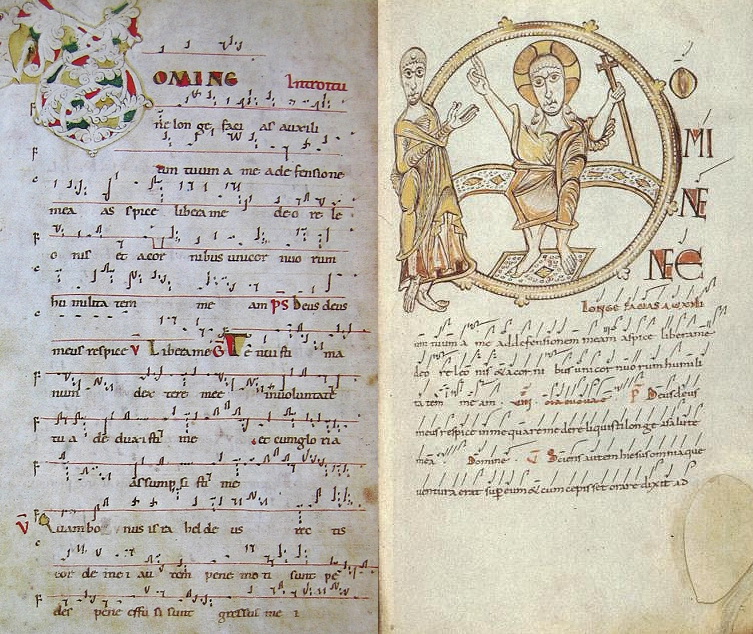 OMINE Introitu
ne lon ge faci as auxili
um tuum a me ad de fensione
mea as spice libera me de o re le
o nis et a cor nibus unicor nuo rum
hu milita tem me am PS Deus deus
meus respice V Libera me G Te nu i sti ma
num dex tere mee in uoluntate
tu a de dux i sti me et cum glo ria
as sump si sti me
V Quam bo nus isra hel de us rec tis
cor de me i au tem pene mo ti sunt pe
des pene effu si sunt gressus me i
O
MI
NE
NE
LONGE FACIAS AUXILI
um tuum a me ad defensionem meam aspice libera me
de o re leo nis & a cor ni bus unicor nuo rum humili
ta tem me am P Deus deus
meus respice in me quare me dereliquisti longe a salute
mea Domine V Sciens autem hiesus omnia que
uentura erat super eum & cum cepisset orare dixit ad